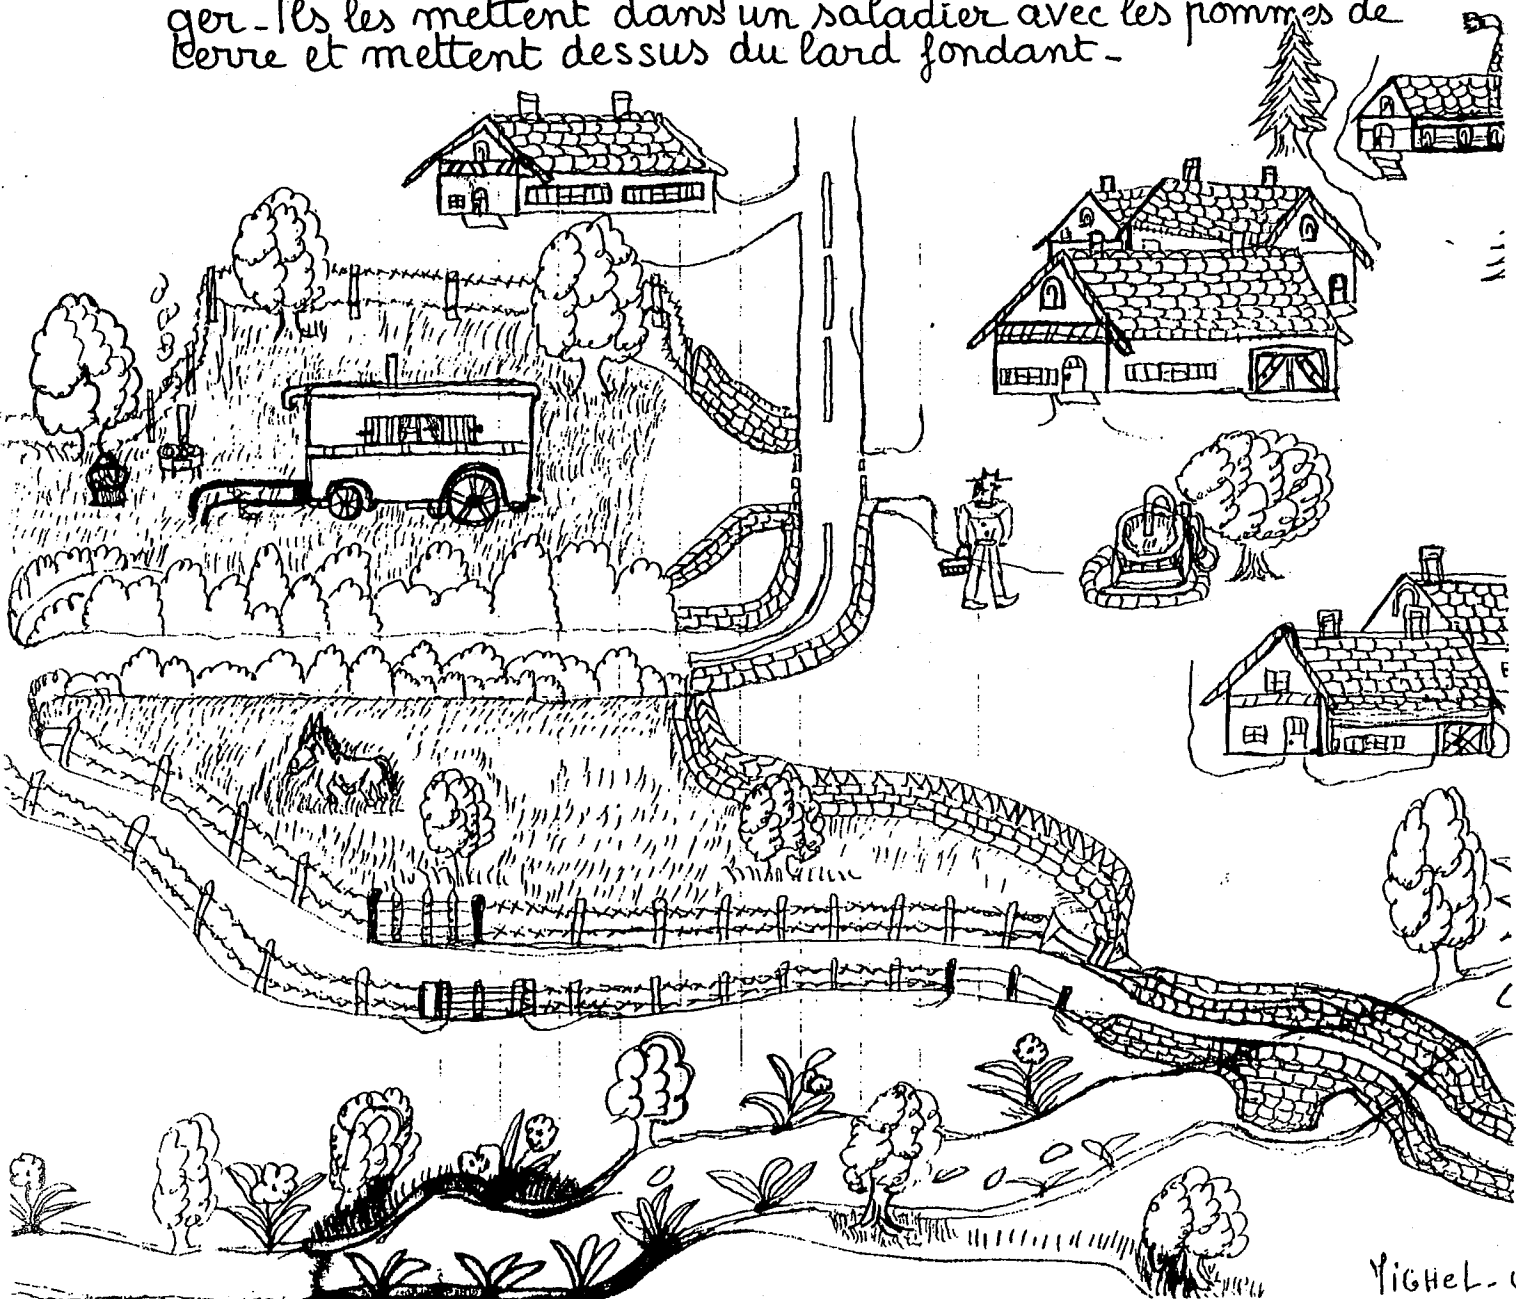 ger_Ils les mettent dans un saladier avec les pommes de
terre et mettent dessus du lard fondant_
YIGHeL_